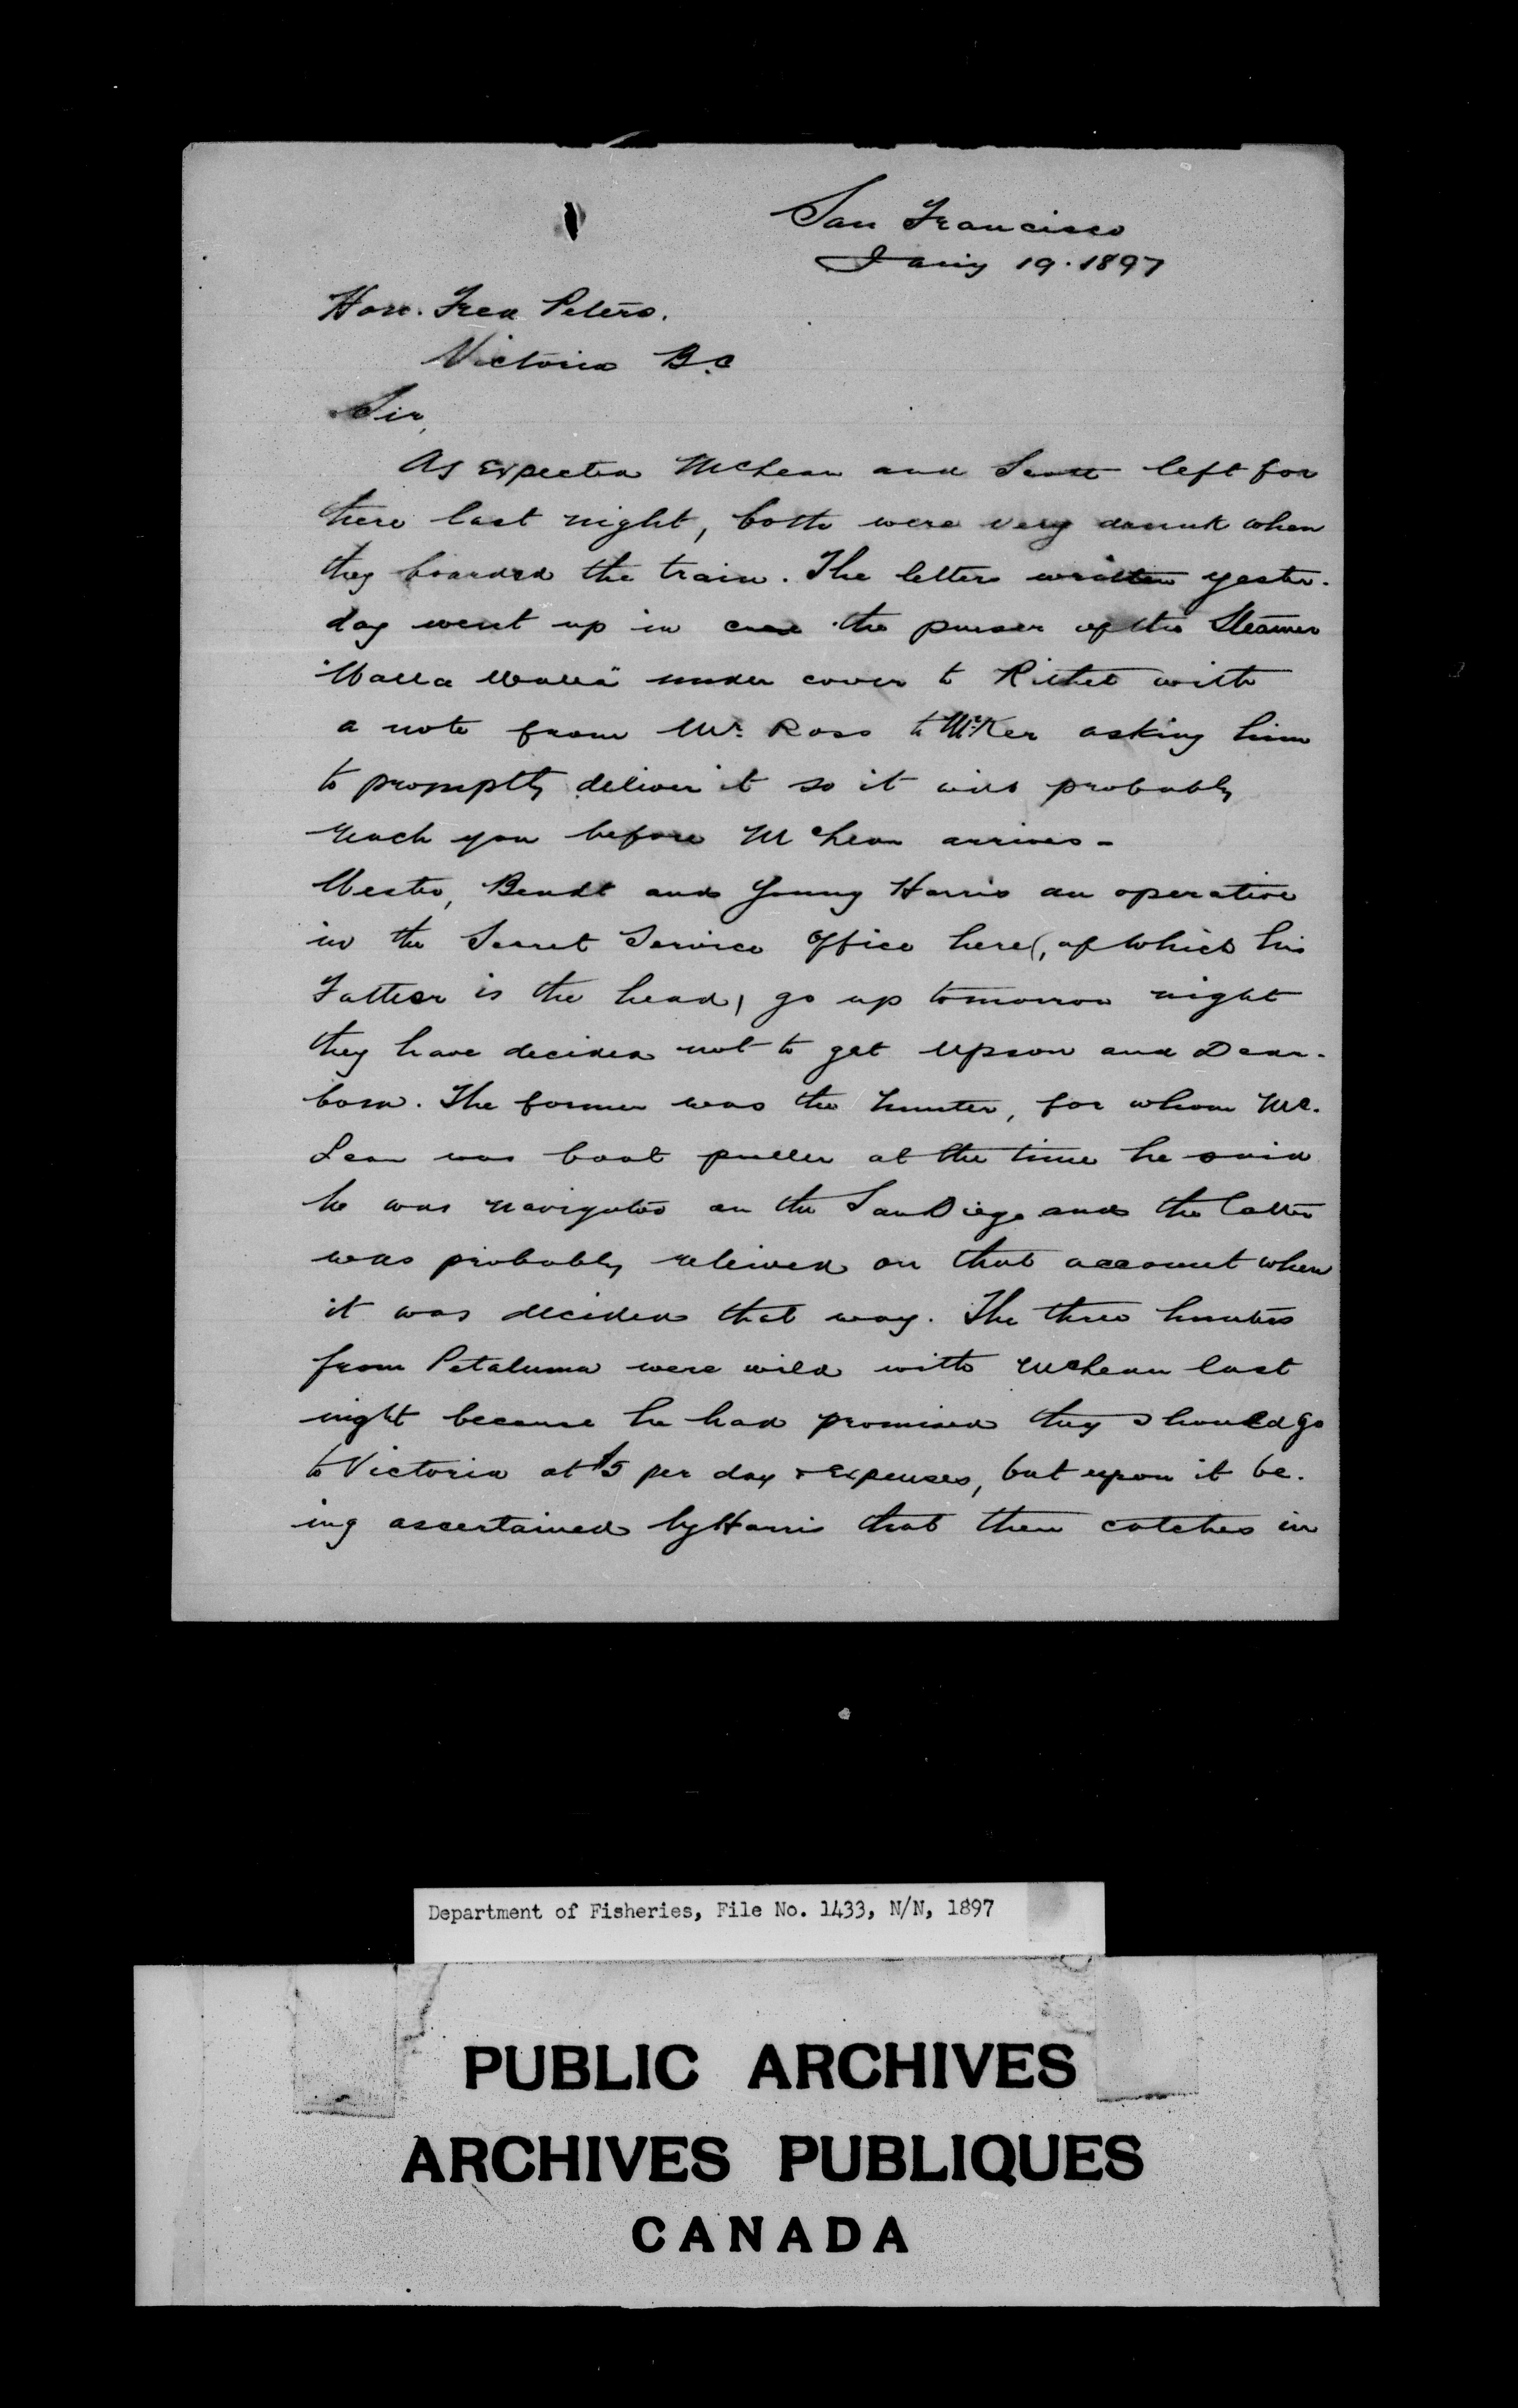 San Francisco
Jany 19. 1897
Hon. Fred Peters.
Victoria B.C
Sir,
As expected McLean and Scott left for
there last night, both were very drunk when
they boarded the train. The letters written yester-
day went up in care the purser of the Steamer
"Walla Walla" under cover to Rithet with
a note from Mr. Ross to Mr. Ker asking him
to promptly deliver it so it will probably
reach you before McLean arrives -
Bendt and Young Harris an operative
in the Secret Service Office here (, of which his
Father is the head) go up tomorrow night
they have decided not to get Upson and Dear-
born. The former was the hunter, for whom Mc.
Lean was boat puller at the time he said
he was navigator on the San Diego and the latter
was probably relieved on that account when
it was decided that way. The three hunters
from Petaluma were wild with McLean last
night because he had promised they should go
to Victoria at $5 per day & expenses, but upon it be-
ing ascertained by Harris that their catches in
Department of Fisheries, File No. 1433, N/N, 1897
PUBLIC ARCHIVES
ARCHIVES PUBLIQUES
CANADA